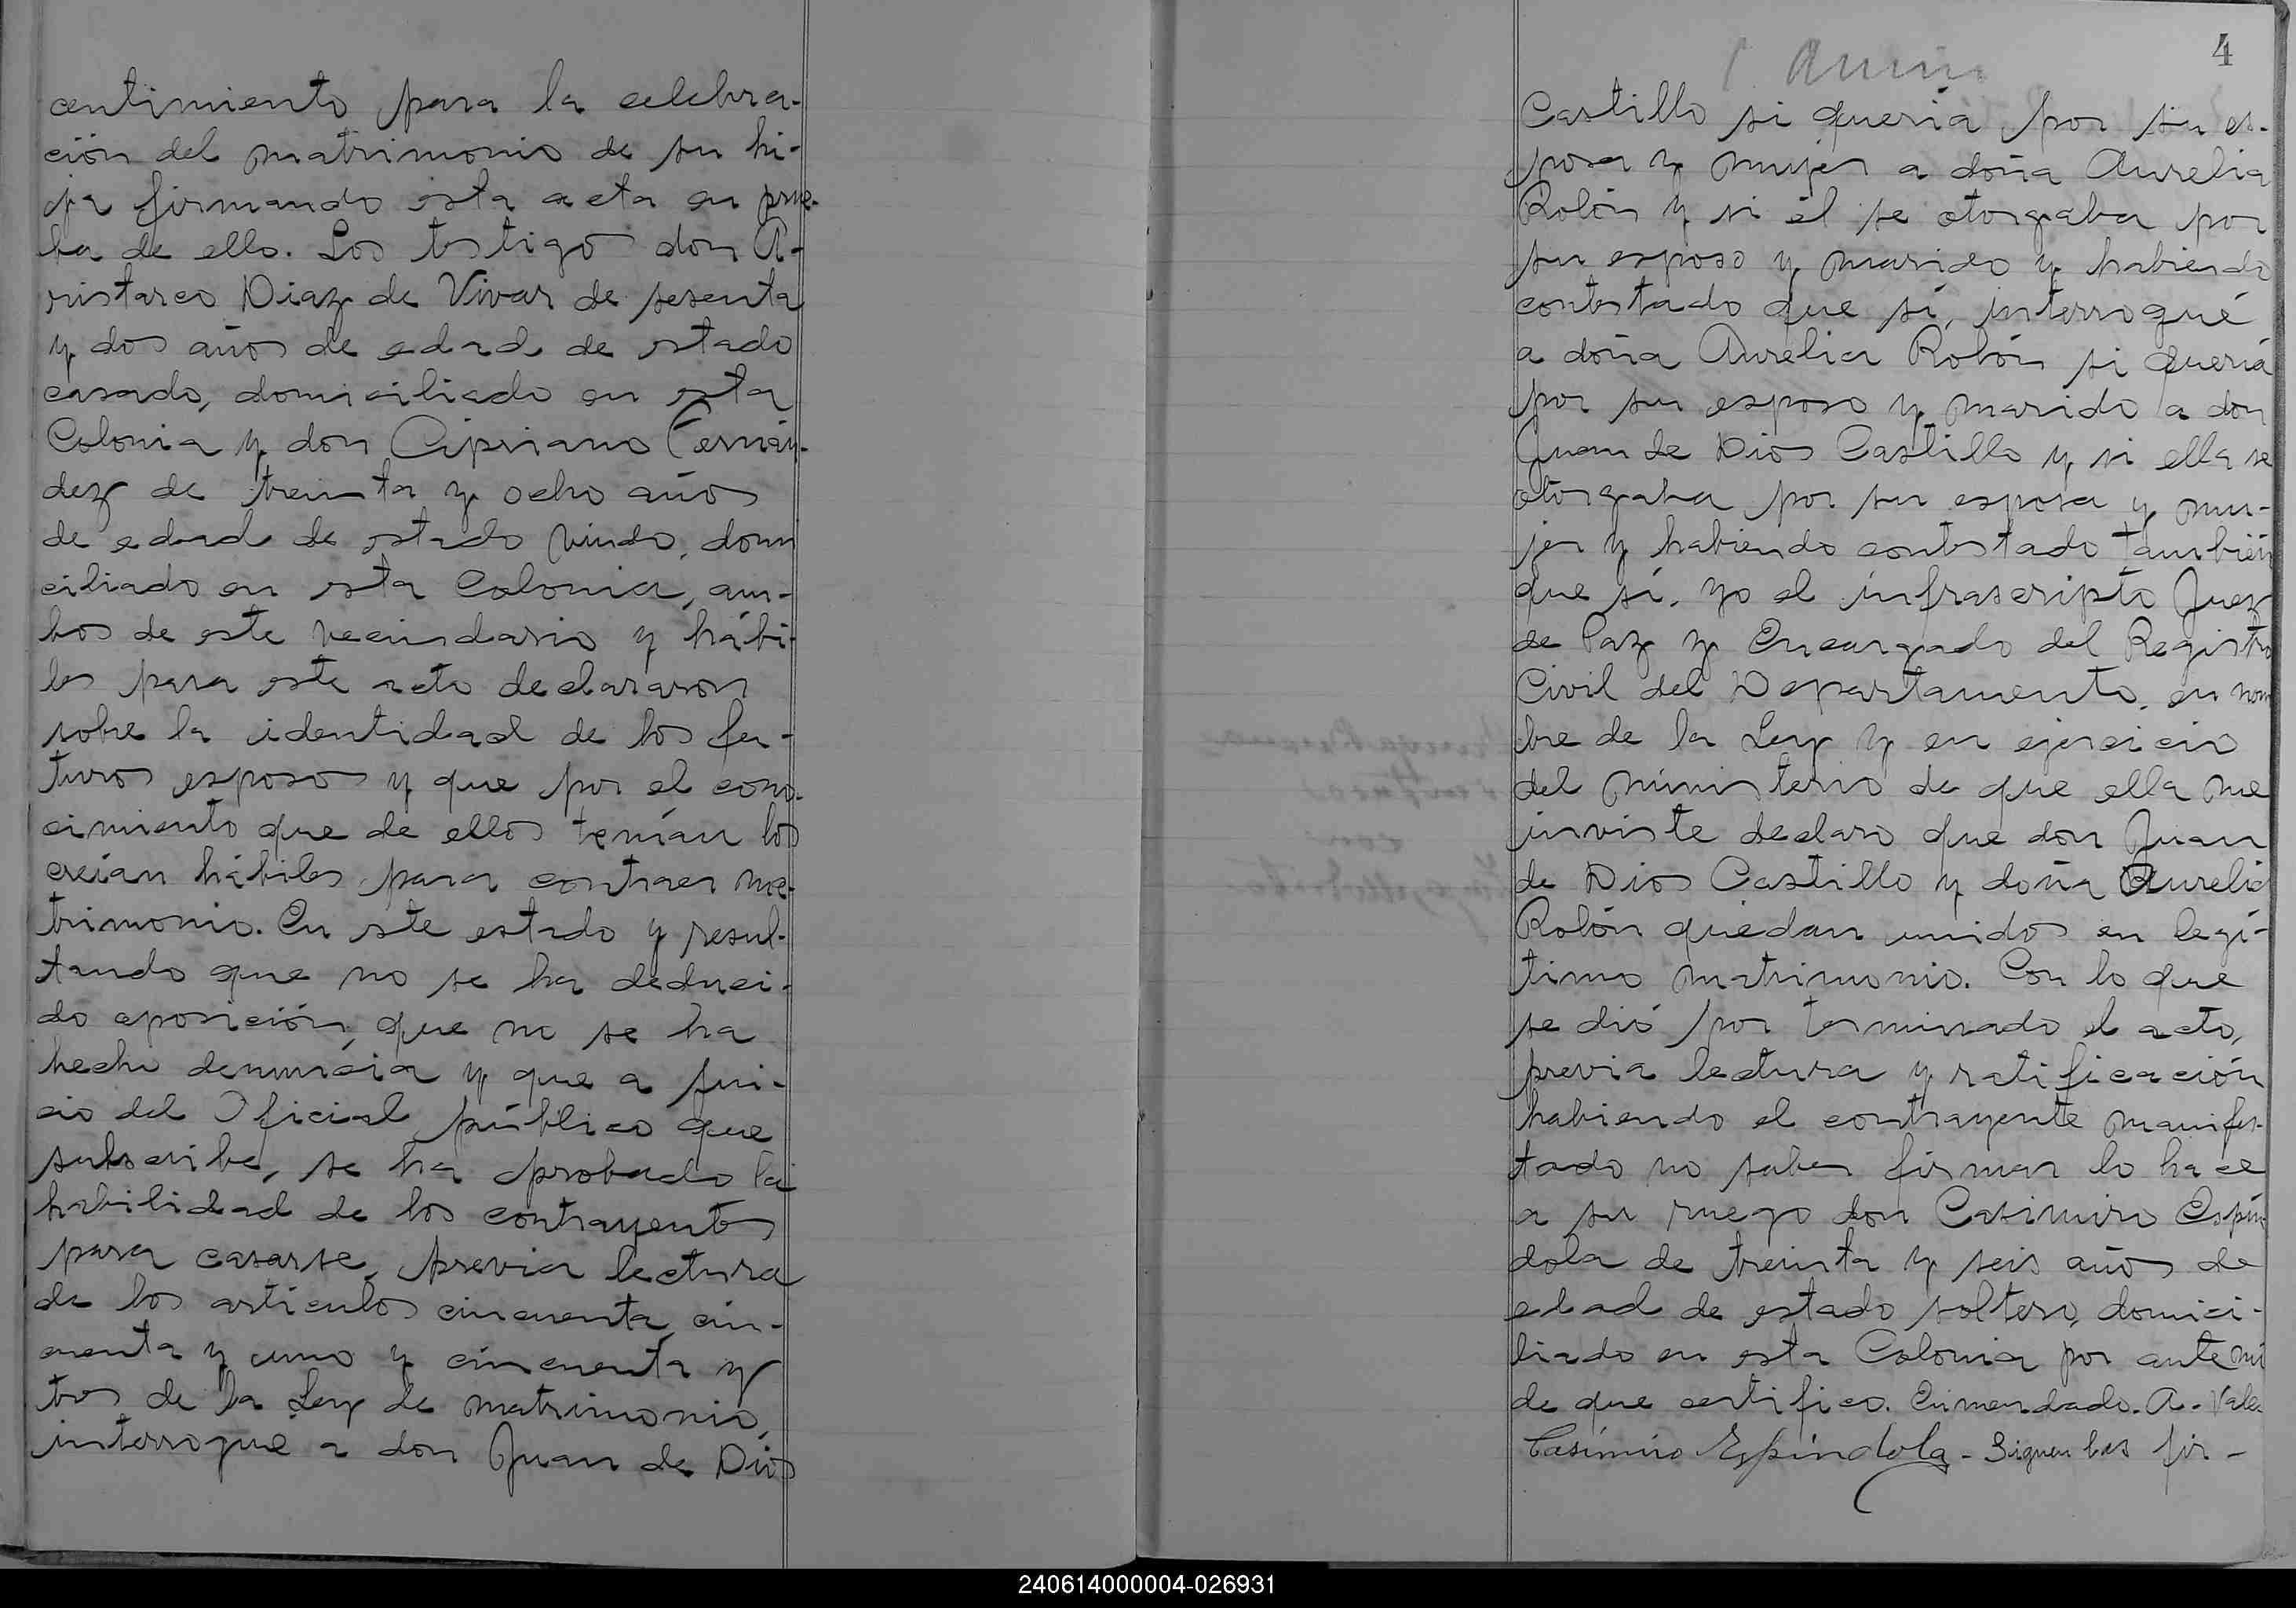 centimiento para la celebra-
ción del matrimonio de su hi-
ja firmando esta acta en prue-
ba de ello. Los testigos don A-
ristarco Diaz de Vivar de sesenta
y dos años de edad, de estado
casado, domiciliado en esta
Colonia y don Cipriano Fernán-
dez de treinta y ocho años
de edad de estado viudo, domi
ciliado en esta Colonia, am-
bos de este vecindario y hábi-
les para este acto declararon
sobre la identidad de los fu-
turos esposos y que por el cono-
cimiento que de ellos tenían los
creían hábiles para contraer ma-
trimonio. En este estado y resul-
tando que no se ha deduci-
do oposición, que no se ha
hecho denuncia y que a jui-
cio del Oficial público que
subscribe, se ha probado la
habilidad de los contrayentes
para casarse, previa lectura
de los artículos cincuenta, cin-
cuenta y uno y cincuenta y
tres de la Ley de matrimonio,
interrogué a don Juan de Dios
4
Castillo si quería por su es-
posa y mujer a doña Aurelia
Rolón y si él se otorgaba por
su esposo y marido y habiendo
contestado que sí, interrogué
a doña Aurelia Rolón si quería
por su esposo y marido a don
Juan de Dios Castillo y si ella se
otorgaba por su esposa y mu-
jer y habiendo contestado también
que sí, yo el infrascripto Juez
de Paz y Encargado del Registro
Civil del Departamento, en nom
bre de la Ley y en ejercicio
del ministerio de que ella me
inviste declaro que don Juan
de Dios Castillo y doña Aurelia
Rolón quedan unidos en legí-
timo matrimonio. Con lo que
se dió por terminado el acto,
previa lectura y ratificación
habiendo el contrayente manifes-
tado no saber firmar lo hace
a su ruego don Casimiro Espín
dola de treinta y seis años de
edad de estado soltero, domici-
liado en esta Colonia por ante mí
de que certifico. Enmendado. A. Vale.
Casimiro Espíndola - Siguen las fir-
240614000004-026931